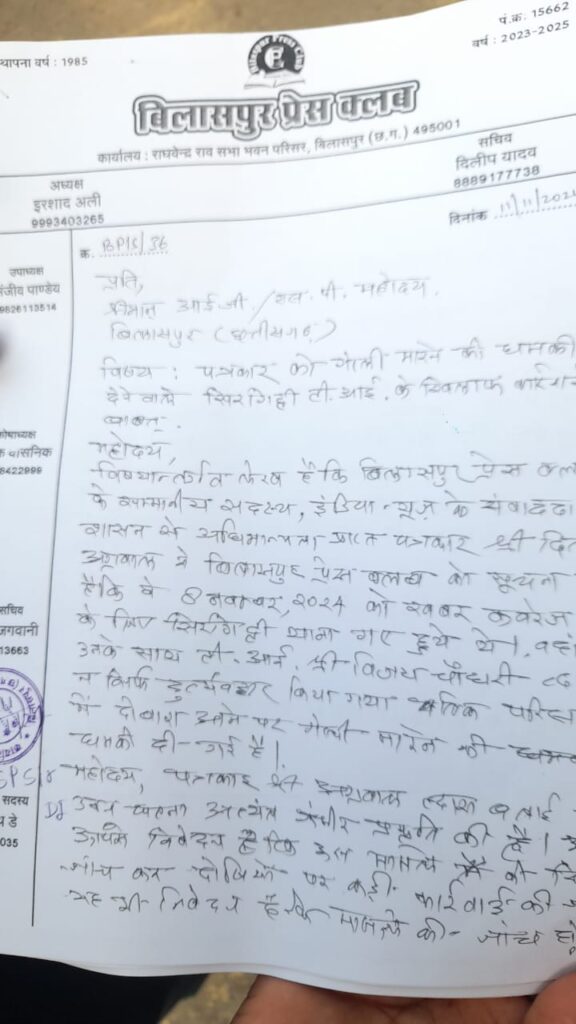 पं.क्र. 15662
थापना वर्ष : 1985
वर्ष : 2023-2025
Bilaspur Press Club
बिलासपुर प्रेस क्लब
कार्यालय : राघवेन्द्र राव सभा भवन परिसर, बिलासपुर (छ.ग.) 495001
अध्यक्ष
इरशाद अली
9993403265
सचिव
दिलीप यादव
8889177738
दिनांक 11/11/202
क. BPC/36
उपाध्यक्ष
जीव पाण्डेय
9826110514
कोषाध्यक्ष
वासनिक
8422999
सचिव
जगवानी
13663
सदस्य
डे
035
प्रति,
श्रीमान आई.जी./एस.पी. महोदय.
बिलासपुर (छत्तीसगढ़)
विषय : पत्रकार को गोली मारने की धमकी
देने वाले सिरगिट्टी टी.आई. के खिलाफ
बाबत्.
महोदय,
विषयान्तर्गत लेख है कि बिलासपुर प्रेस
के सम्मानीय सदस्य, इंडिया न्यूज़ के
शासन से अधिमान्यता प्राप्त पत्रकार श्री
अग्रवाल ने बिलासपुर प्रेस क्लब को सूचना
है कि वे 8 नवम्बर, 2024 को खबर कवरेज
के लिए सिरगिट्टी थाना गए हुये थे। वहां
उनके साथ टी.आई. श्री विजय चौधरी
न सिर्फ दुर्व्यवहार किया गया बल्कि
में दोबारा आने पर गोली मारने की
धमकी दी गई है।
महोदय, पत्रकार श्री अग्रवाल द्वारा बताई
उक्त घटना अत्यंत गंभीर प्रकृति की है।
आपसे निवेदन है कि इस मामले की
जांच कर दोषियों पर कड़ी कार्रवाई की
यह भी निवेदन है कि मामले की जांच